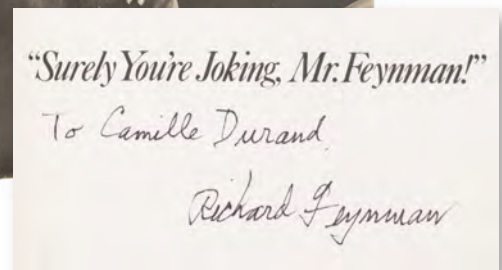 “Surely You're Joking, Mr. Feynman!”
To Camille Durand.
Richard Feynman